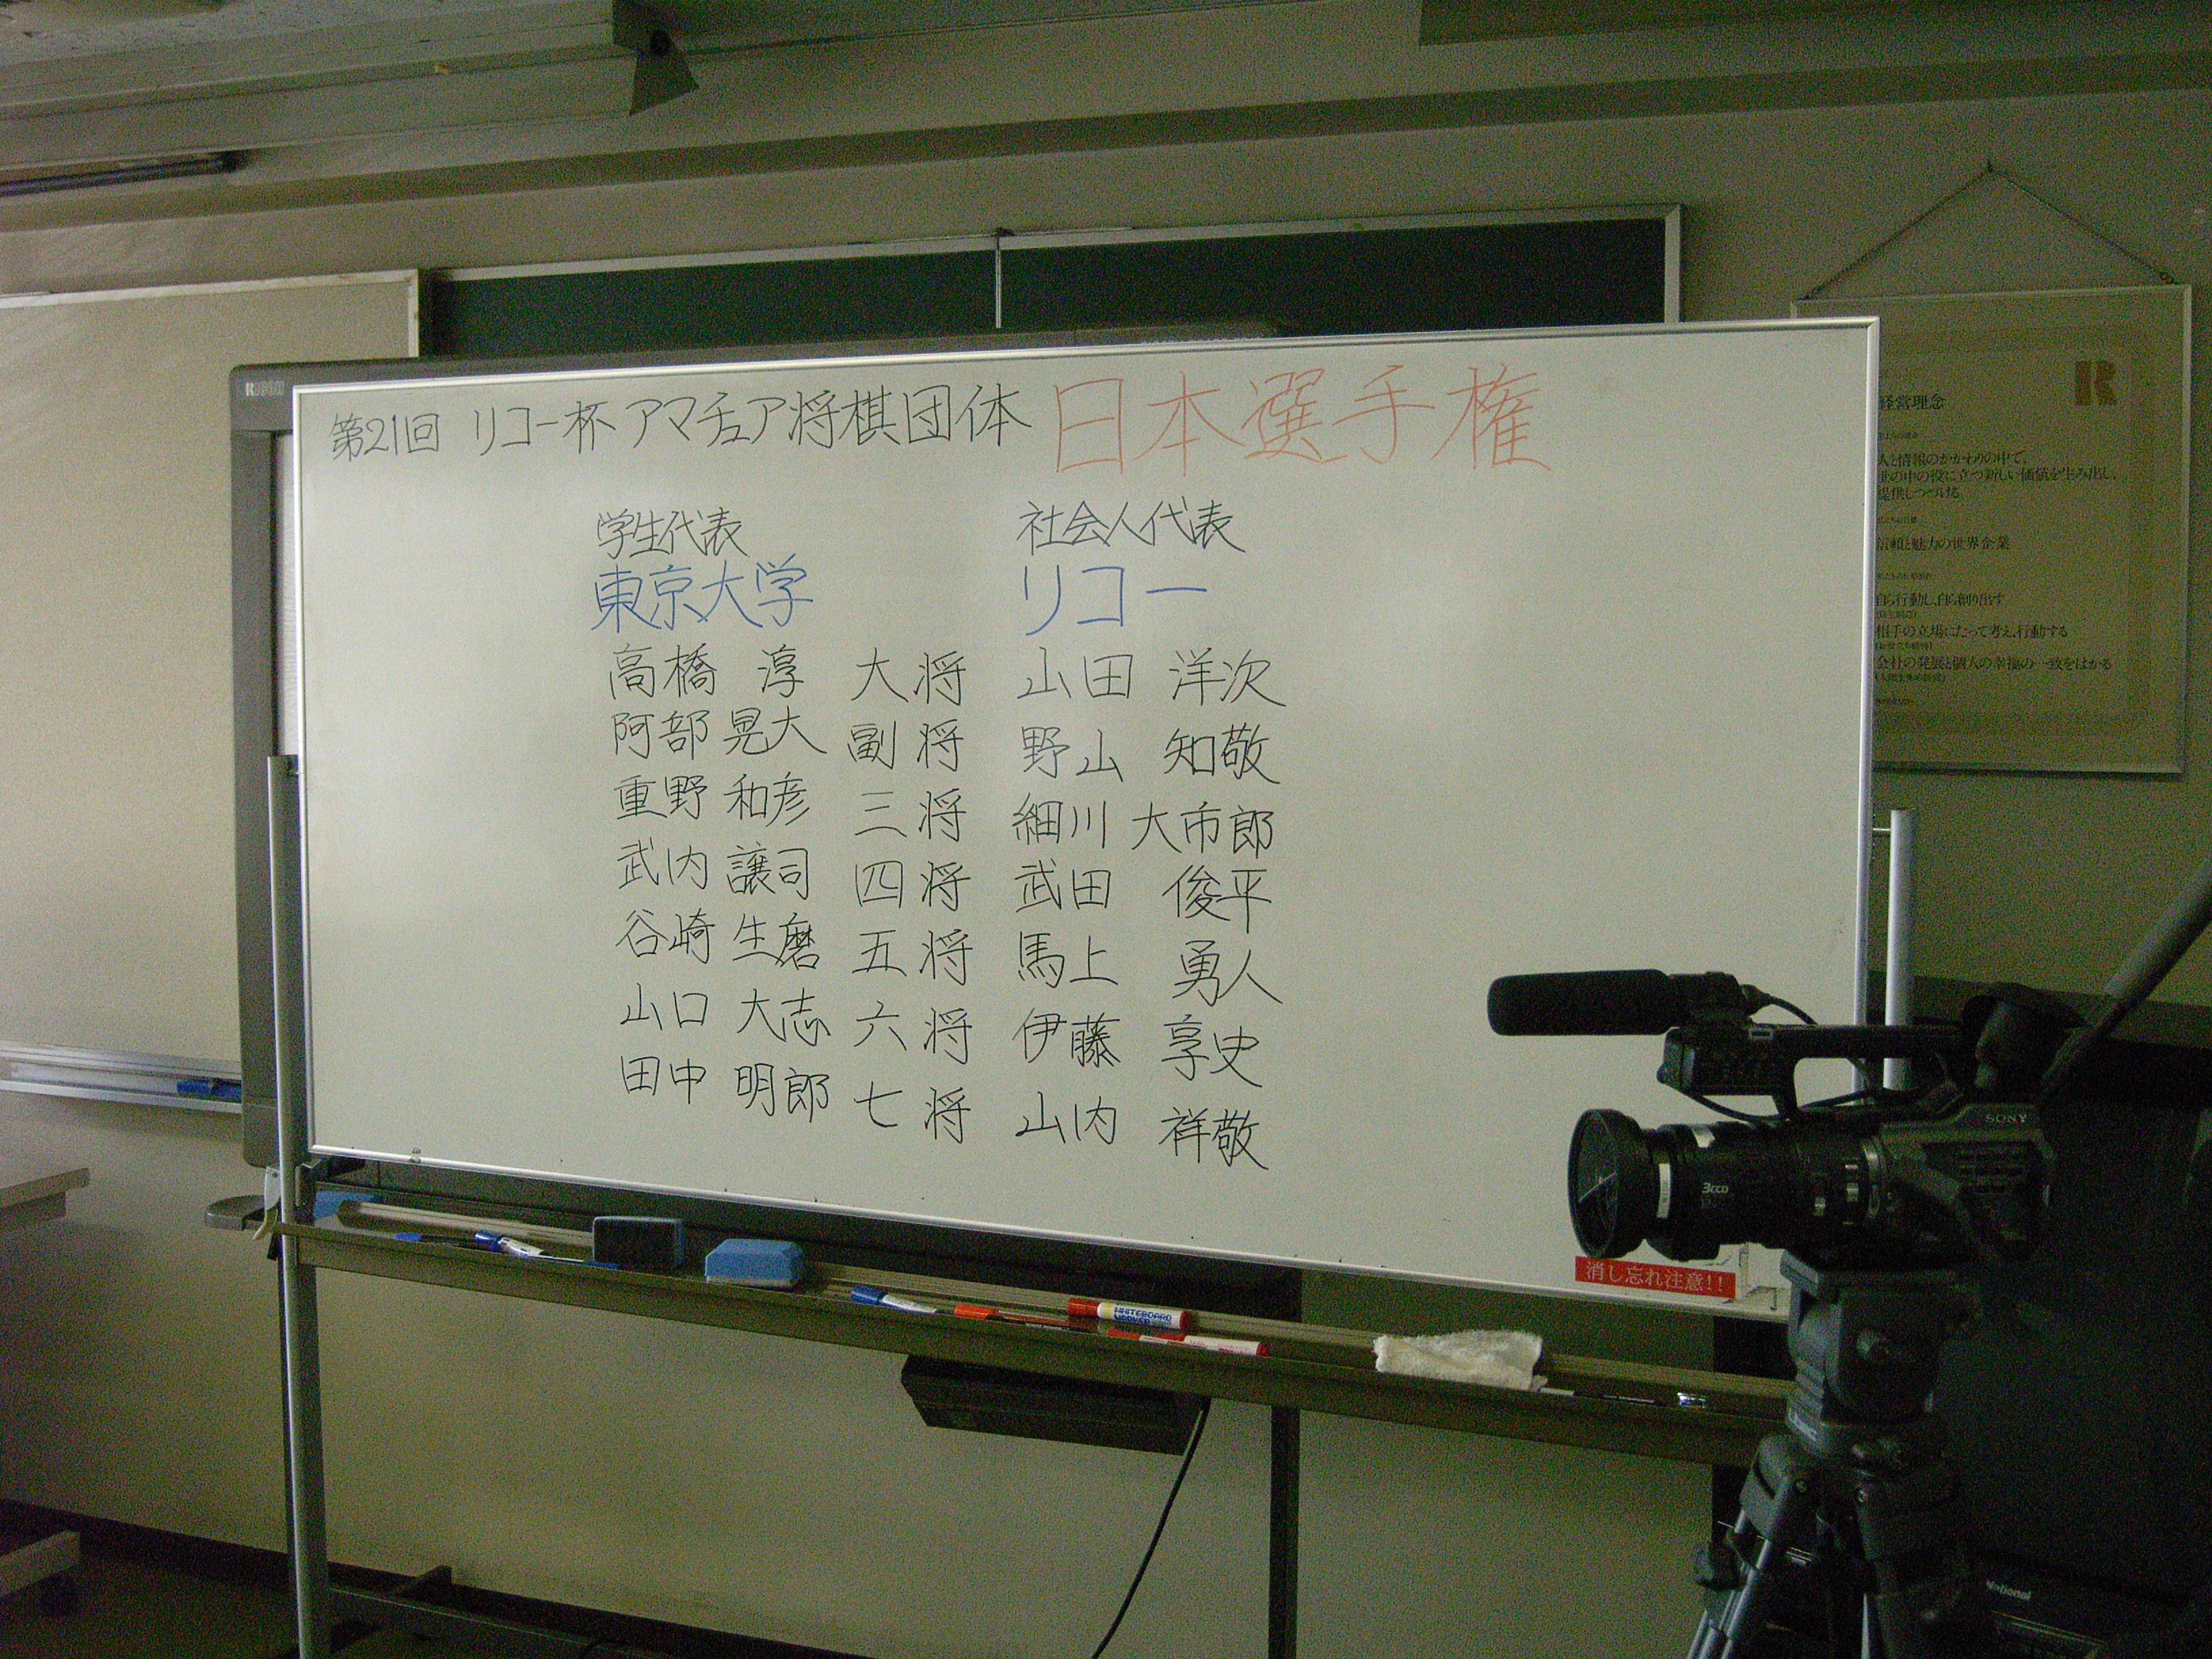 第21回 リコー杯 アマチュア将棋団体 日本選手権
学生代表 社会人代表
東京大学 リコー
高橋 淳 大将 山田 洋次
阿部 晃大 副将 野山 知敬
重野 和彦 三将 細川 大市郎
武内 譲司 四将 武田 俊平
谷崎 生磨 五将 馬上 勇人
山口 大志 六将 伊藤 享史
田中 明郎 七将 山内 祥敬
消し忘れ注意!!
経営理念
人と情報のかかわりの中で、
世の中の役に立つ新しい価値を生み出し、
提供しつづける
信頼と魅力の世界企業
自ら行動し、自ら創り出す
相手の立場にたって考え、行動する
会社の発展と個人の幸福の一致をはかる
SONY
3CCD
WHITEBOARD
MARKER
National